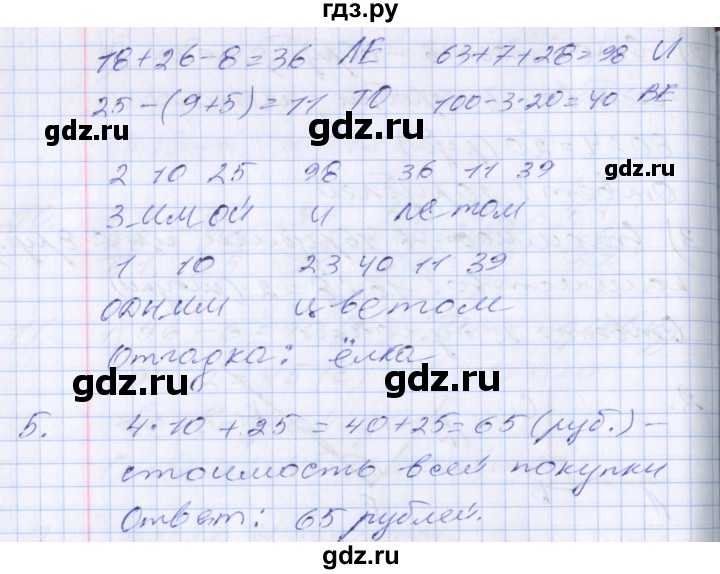 гдз.ру
18+26-8=36 ЛЕ 63+7+28=98 И
25-(9+5)=11 ТО 100-3·20=40 ВЕ
gdz.ru gdz.ru
2 10 25 98 36 11 39
gdz.ru
Зимой и летом
1 10 23 40 11 39
одним цветом
gdz.ru
Отгадка: ёлка
gdz.ru
5. 4·10+25=40+25=65 (руб.) –
стоимость всей покупки
Ответ: 65 рублей.
gdz.ru gdz.ru
гдз.ру